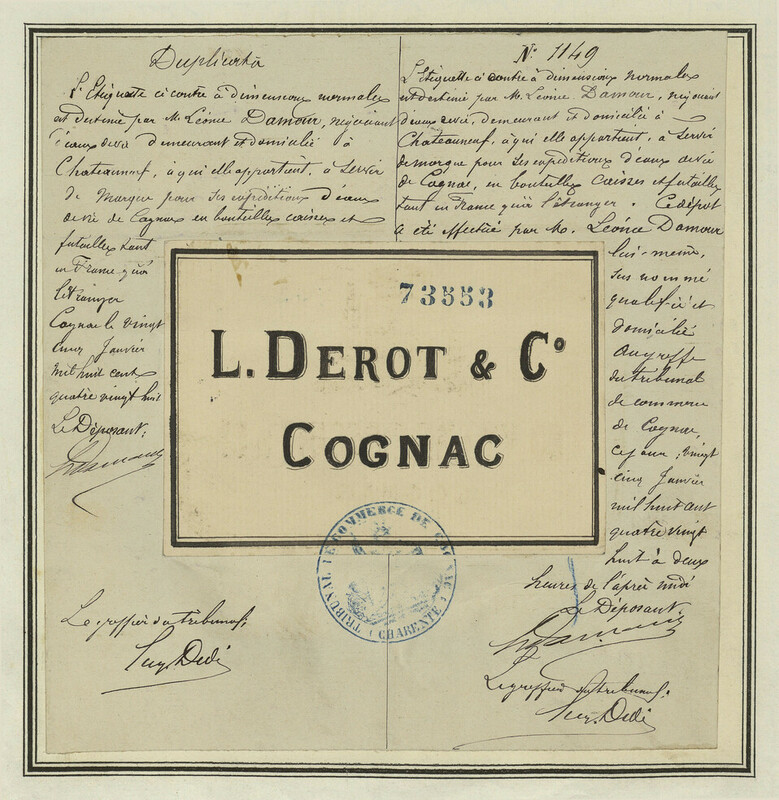 Duplicata
L'Etiquette ci contre à dimensions normales
est destinée par M. Léonce Damour, négociant
d'eaux de vie demeurant et domicilié à
Chateauneuf, à qui elle appartient, à servir
de Marque pour ses expéditions d'eaux
de vie de Cognac en bouteilles caisses et
futailles tant
en France qu'à
l'étranger
Cognac le vingt
cinq Janvier
mil huit cent
quatre vingt huit
Le Déposant;
Le greffier du tribunal;
N° 1149
L'Etiquette ci contre à dimensions normales
est destiné par M. Léonce Damour, négociant
d'eaux de vie, demeurant et domicilié à
Chateauneuf, à qui elle appartient, à servir
de marque pour ses expéditions d'eaux de vie
de Cognac, en bouteilles caisses et futailles
tant en France qu'à l'étranger. Ce dépôt
a été effectué par M. Léonce Damour
lui-même,
sus nommé
qualifié et
domicilié
au greffe
du tribunal
de commerce
de Cognac,
ce jour, vingt
cinq Janvier
mil huit cent
quatre vingt
huit à deux
heures de l'après midi
Le Déposant;
Le greffier du tribunal;
73553
L. DEROT & Co
COGNAC
TRIBUNAL DE COMMERCE DE COGNAC
(CHARENTE)